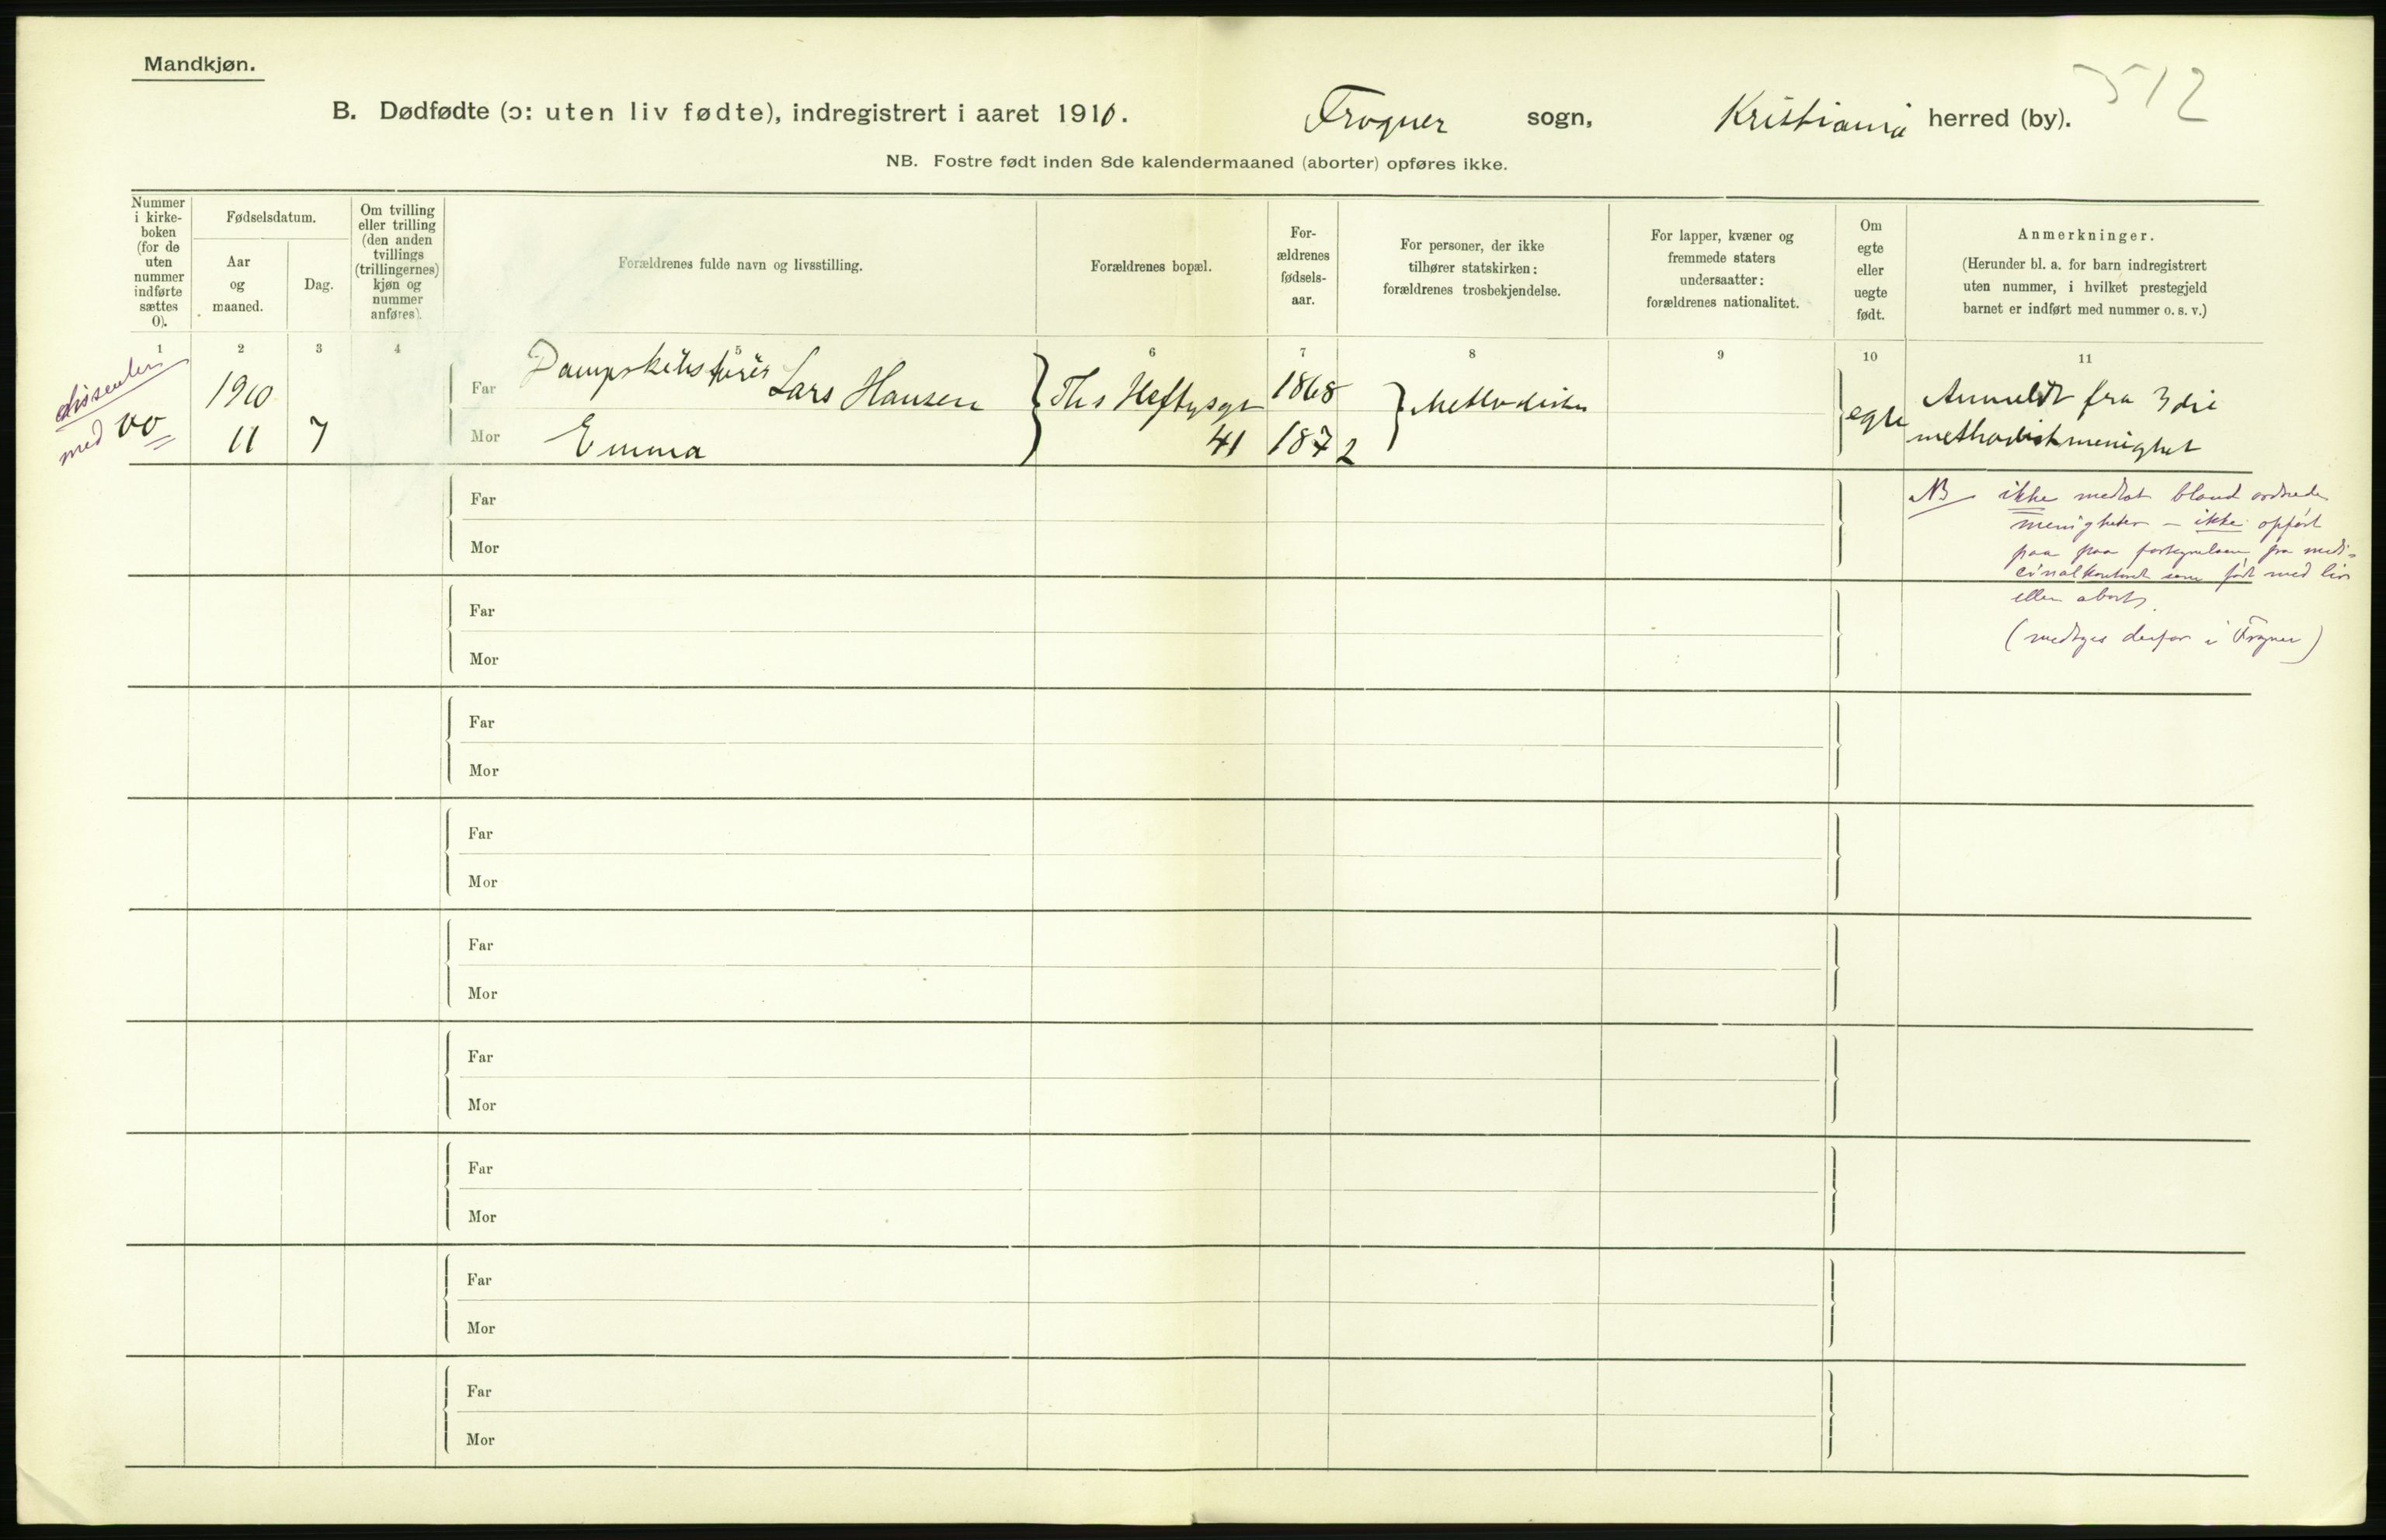 Mandkjøn.
512
B. Dødfødte (ɔ: uten liv fødte), indregistrert i aaret 1910. Frogner sogn, Kristiania herred (by).
NB. Fostre født inden 8de kalendermaaned (aborter) opføres ikke.
Nummer
i kirke-
boken
(for de
uten
nummer
indførte
sættes
0).
Fødselsdatum.
Aar
og
maaned.
Dag.
Om tvilling
eller trilling
(den anden
tvillings
(trillingernes)
kjøn og
nummer
anføres).
Forældrenes fulde navn og livsstilling.
Forældrenes bopæl.
For-
ældrenes
fødsels-
aar.
For personer, der ikke
tilhører statskirken:
forældrenes trosbekjendelse.
For lapper, kvæner og
fremmede staters
undersaatter:
forældrenes nationalitet.
Om
egte
eller
uegte
født.
Anmerkninger.
(Herunder bl. a. for barn indregistrert
uten nummer, i hvilket prestegjeld
barnet er indført med nummer o. s. v.)
1 2 3 4 5 6 7 8 9 10 11
dissenter
med
00
1910
11 7
Far Dampskibsfører Lars Hansen
Mor Emma
Ths Heftysgt
41
1868
1872
Methodister
egte
Anmeldt fra 3die
methodistmenighet
NB ikke medtat bland ordnede
menigheter – ikke opført
paa paa fortegnelsen fra medi-
cinalkontoret som født med liv
eller abort.
(medtages derfor i Frogner)
Far
Mor
Far
Mor
Far
Mor
Far
Mor
Far
Mor
Far
Mor
Far
Mor
Far
Mor
Far
Mor